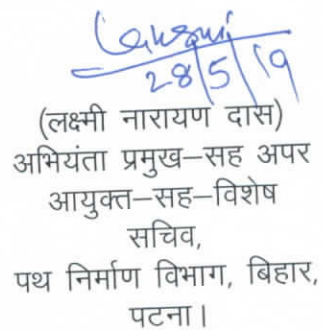 28/5/19
(लक्ष्मी नारायण दास)
अभियंता प्रमुख–सह अपर
आयुक्त–सह–विशेष
सचिव,
पथ निर्माण विभाग, बिहार,
पटना।